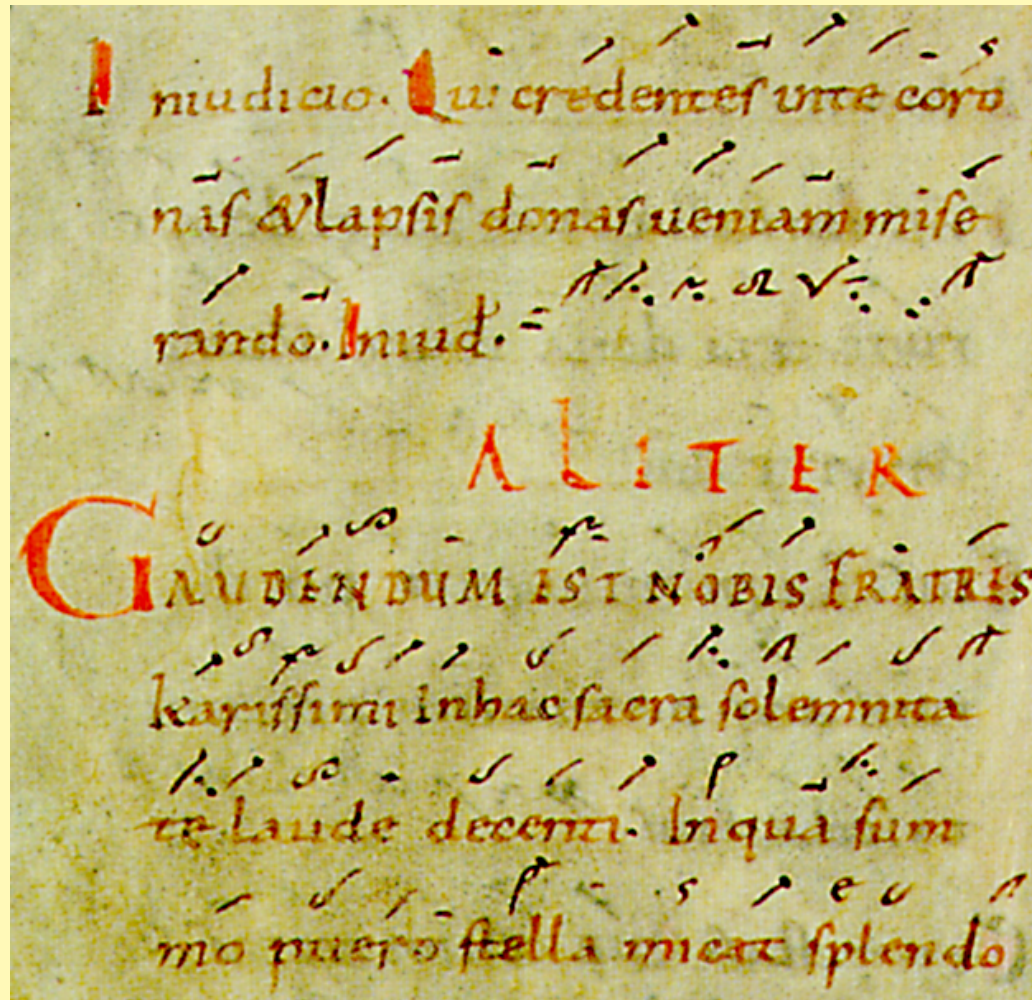 Iniudicio. Qui credentes inte coro
nas & lapsis donas ueniam mise
rando. Iniud.
ALITER
GAUDENDUM EST NOBIS FRATRES
karissimi In hac sacra solemnita
te laude decenti. In qua sum
mo puero stella micat splendo